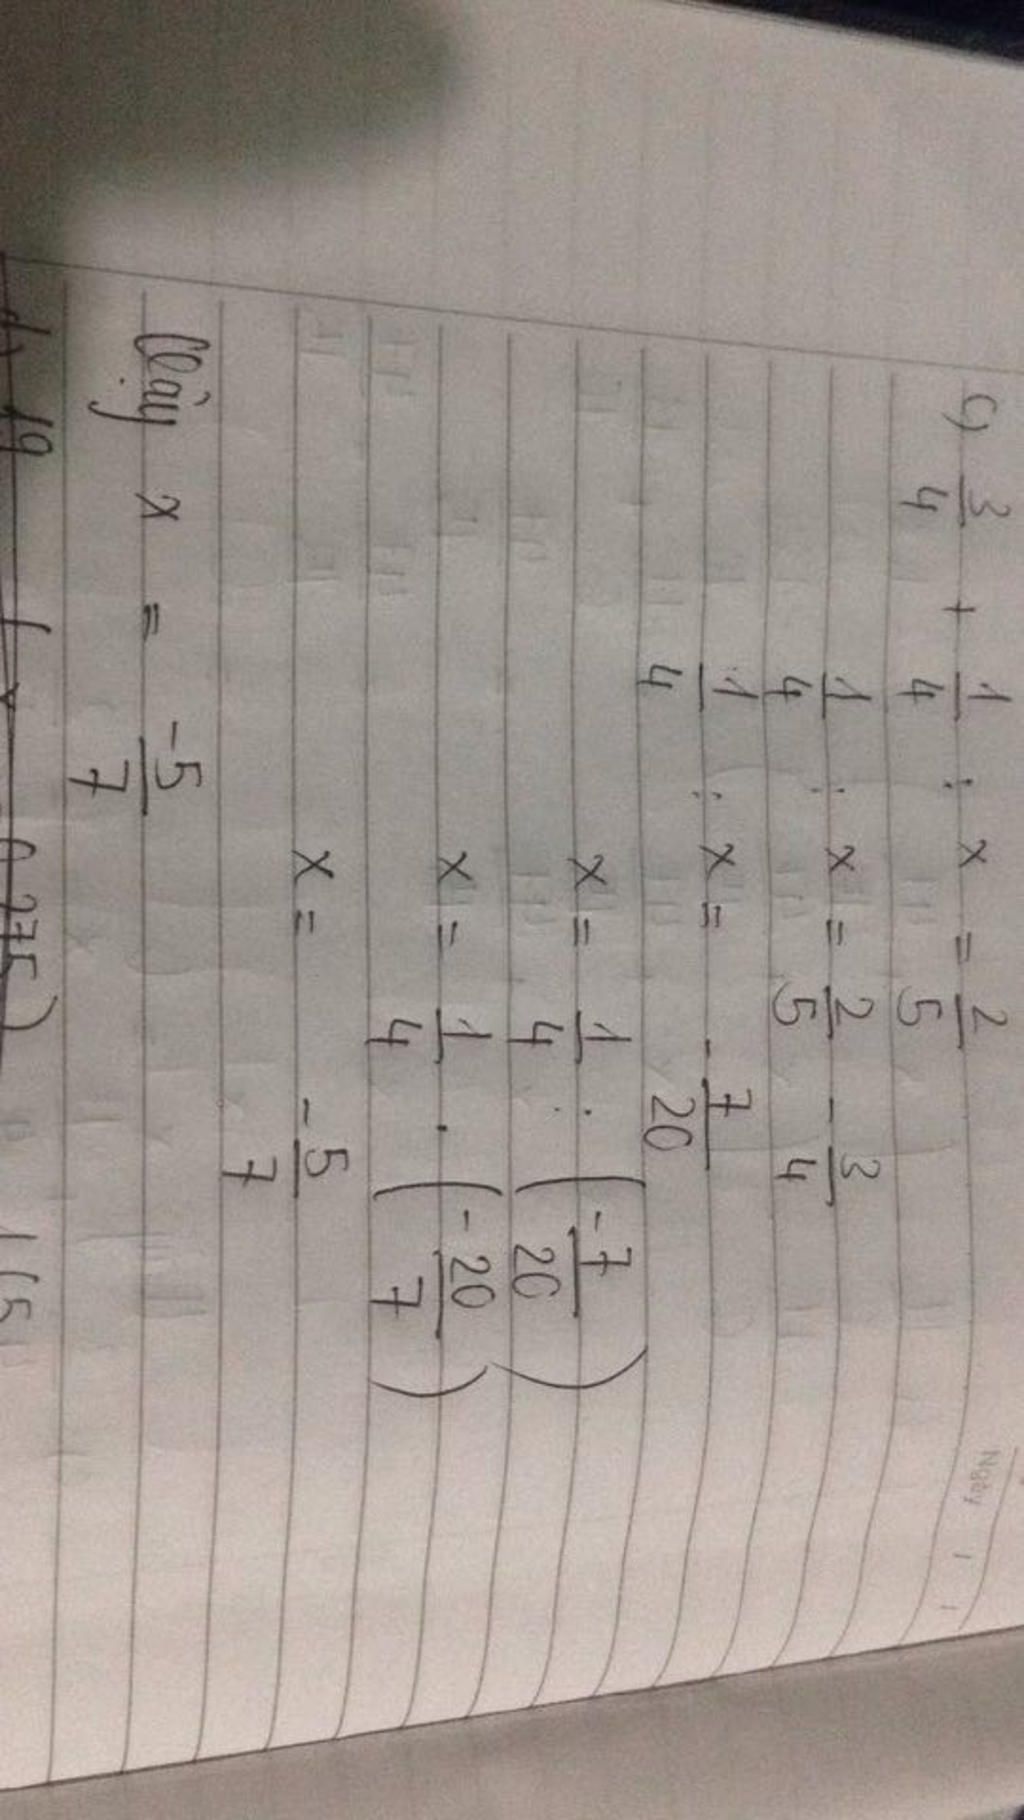 Ngày / /
c) 3/4 + 1/4 : x = 2/5
1/4 : x = 2/5 - 3/4
1/4 : x = - 7/20
x = 1/4 : (-7/20)
x = 1/4 . (-20/7)
x = -5/7
Vậy x = -5/7
0,275)